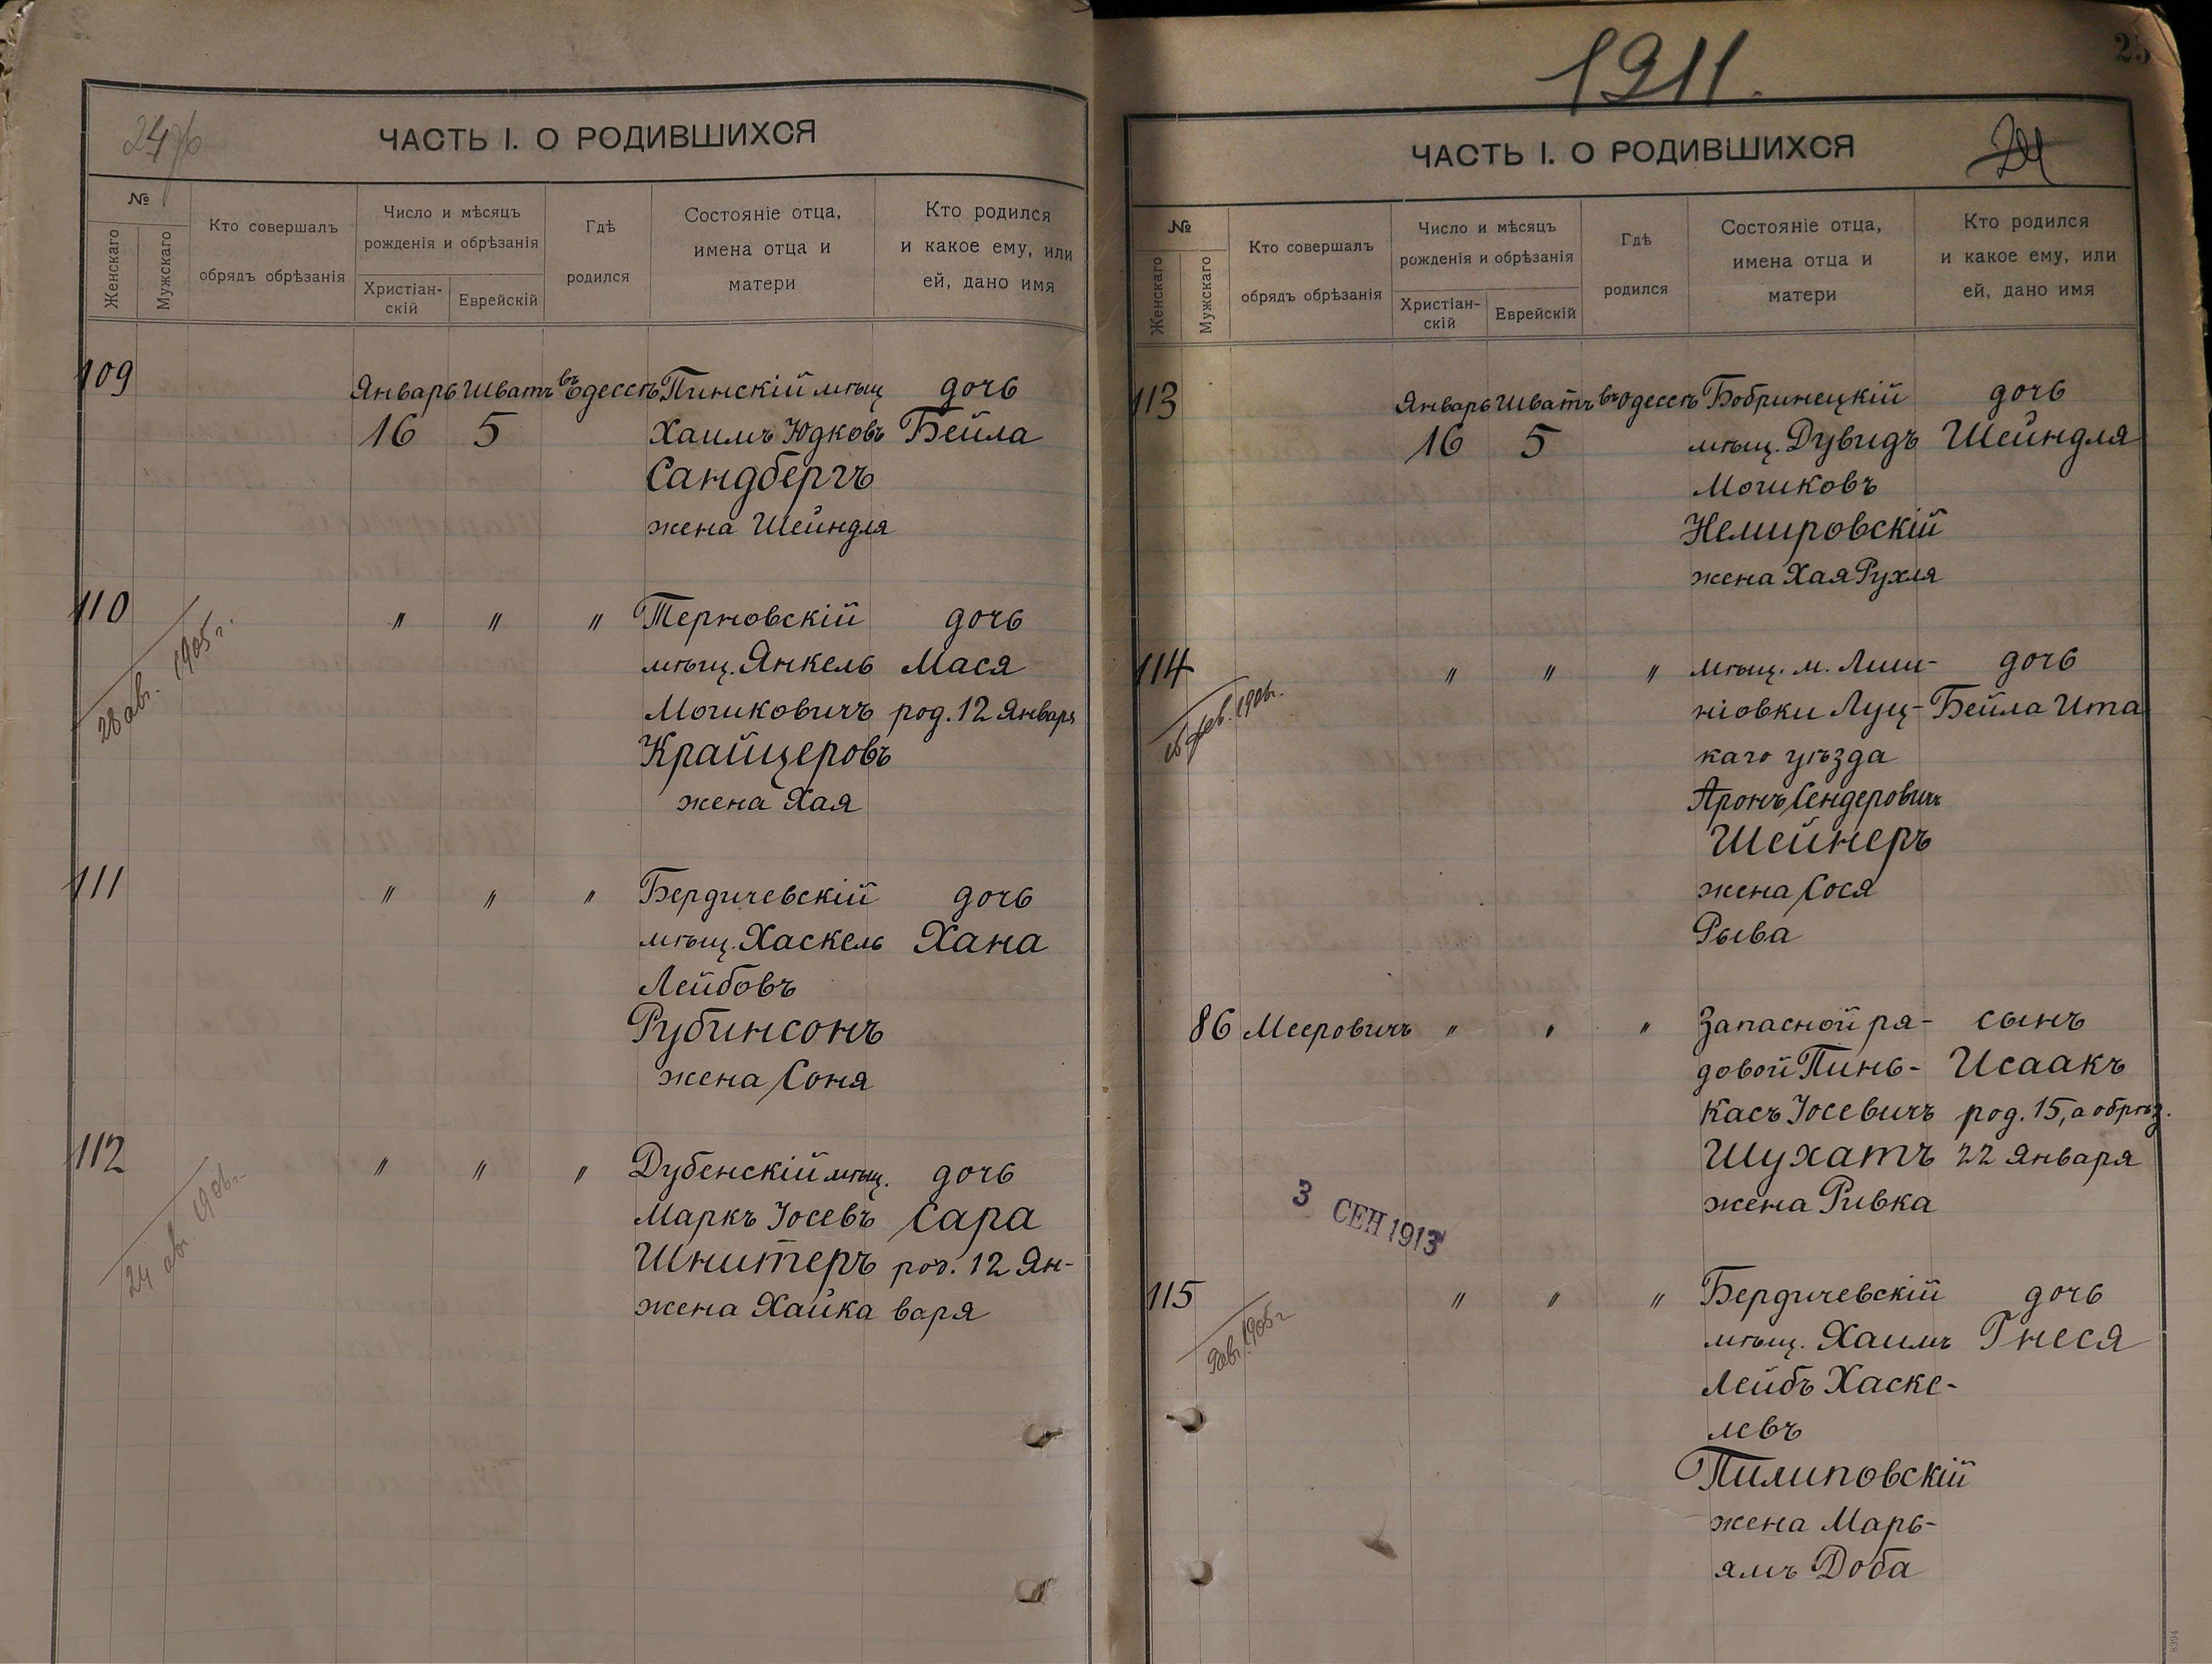 ЧАСТЬ I. О РОДИВШИХСЯ
№
Женскаго
Мужскаго
Кто совершалъ
обрядъ обрѣзанія
Число и мѣсяцъ
рожденія и обрѣзанія
Христіан-
скій
Еврейскій
Гдѣ
родился
Состояніе отца,
имена отца и
матери
Кто родился
и какое ему, или
ей, дано имя
109 Январь Шватъ въ Одессѣ Пинскій мѣщ дочь
16 5 Хаимъ Юдковъ Бейла
Сандбергъ
жена Шейндля
110 " " " Терновскій дочь
28 авг. 1905 г.
мѣщ. Янкель Мася
Мошковичъ род. 12 Января
Крайцеровъ
жена Хая
111 " " " Бердичевскій дочь
мѣщ. Хаскель Хана
Лейбовъ
Рубинсонъ
жена Соня
112 " " " Дубенскій мѣщ. дочь
24 авг. 1906 г.
Маркъ Іосевъ Сара
Шнитеръ род. 12 Ян-
жена Хайка варя
1911.
25
ЧАСТЬ I. О РОДИВШИХСЯ
№
Женскаго
Мужскаго
Кто совершалъ
обрядъ обрѣзанія
Число и мѣсяцъ
рожденія и обрѣзанія
Христіан-
скій
Еврейскій
Гдѣ
родился
Состояніе отца,
имена отца и
матери
Кто родился
и какое ему, или
ей, дано имя
113 Январь Шватъ въ Одессѣ Бобринецкій дочь
16 5 мѣщ. Дувидъ Шейндля
Мошковъ
Немировскій
жена Хая Рухля
114 " " " мѣщ. м. Лиш- дочь
1906г.
ніовки Луц- Бейла Ита
каго уѣзда
Аронъ Сендеровичъ
Шейнеръ
жена Сося
Рыва
86 Мееровичъ " " " Запасной ря- сынъ
довой Пинь- Исаакъ
касъ Іосевичъ род. 15, а обрѣз.
Шухатъ 22 Января
жена Ривка
3 СЕН 1913
115 " " " Бердичевскій дочь
авг. 1905 г
мѣщ. Хаимъ Гнеся
Лейбъ Хаске-
левъ
Пилиповскій
жена Марь-
ямъ Доба
8394